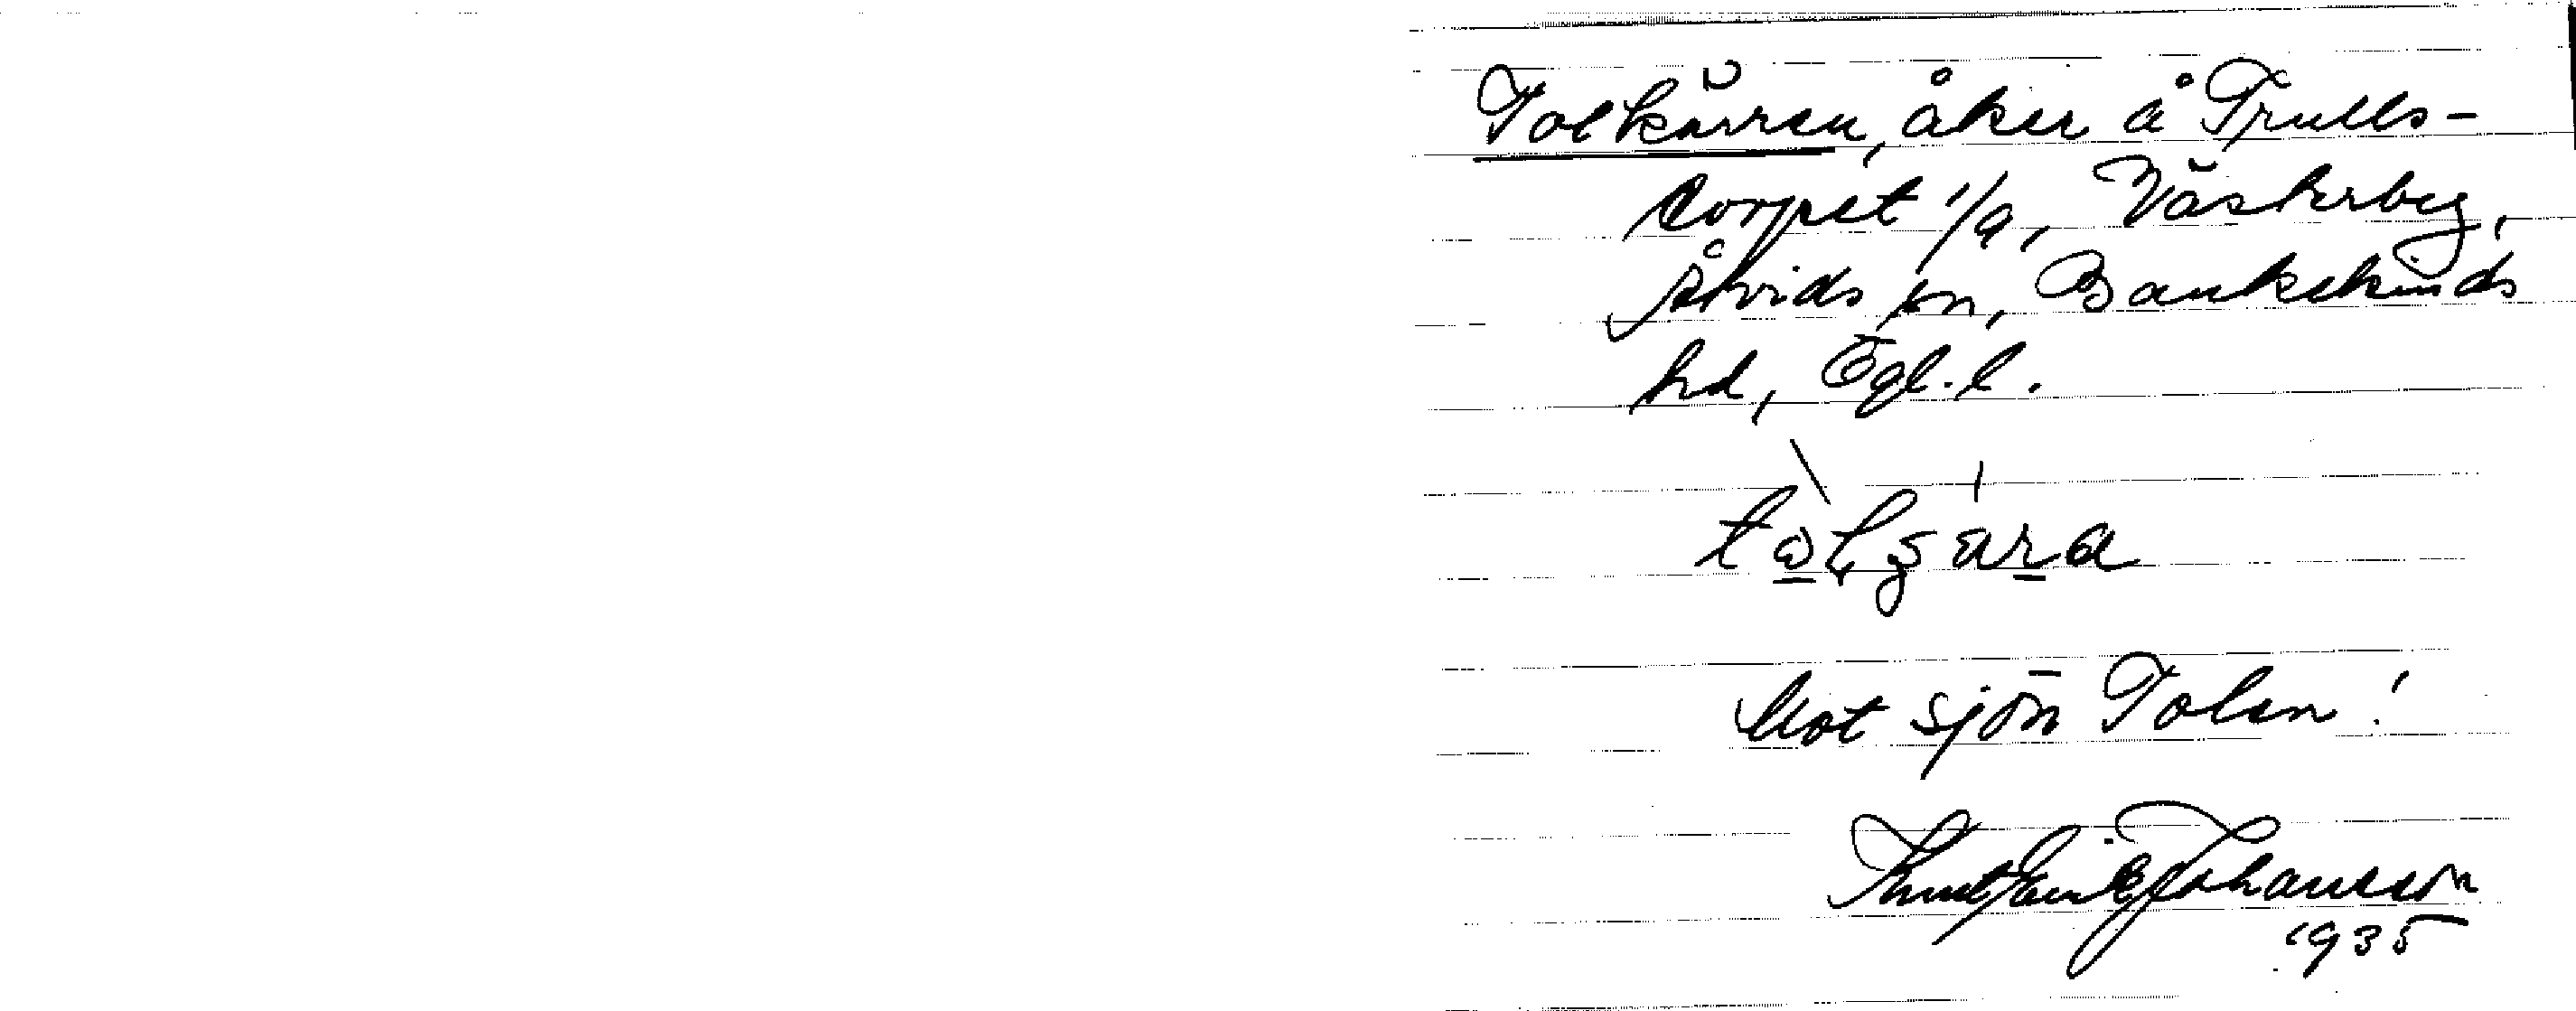 Tolkärren, åker å Trulls-
torpet 1/9, Västerby,
Åtvids sn, Bankekinds
hd, Ögl. l.
Mot sjön Tolen!
Knut Erik Johansson
1935